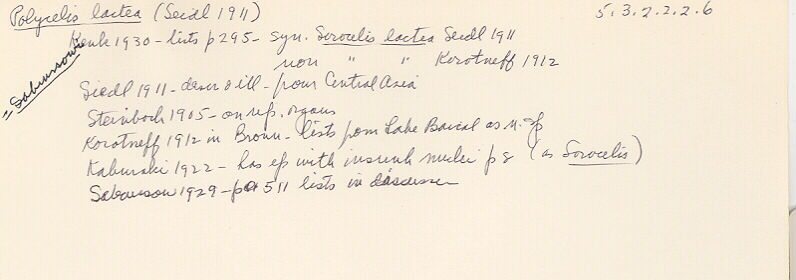 Polycelis lactea (Seidl 1911) 5.3.2.2.2.6
Kenk 1930 - lists p295 - syn. Sorocelis lactea Seidl 1911
non " " Korotneff 1912
"Sabussow
Siedl 1911 - descr & ill - from Central Asia
Steinboch 1905 - on rep. organs
Korotneff 1912 in Brown - lists from Lake Baical as n. sp
Kaburaki 1922 - has ep with insunk nuclei p 8 (as Sorocelis)
Sabussow 1929 - p 511 lists in